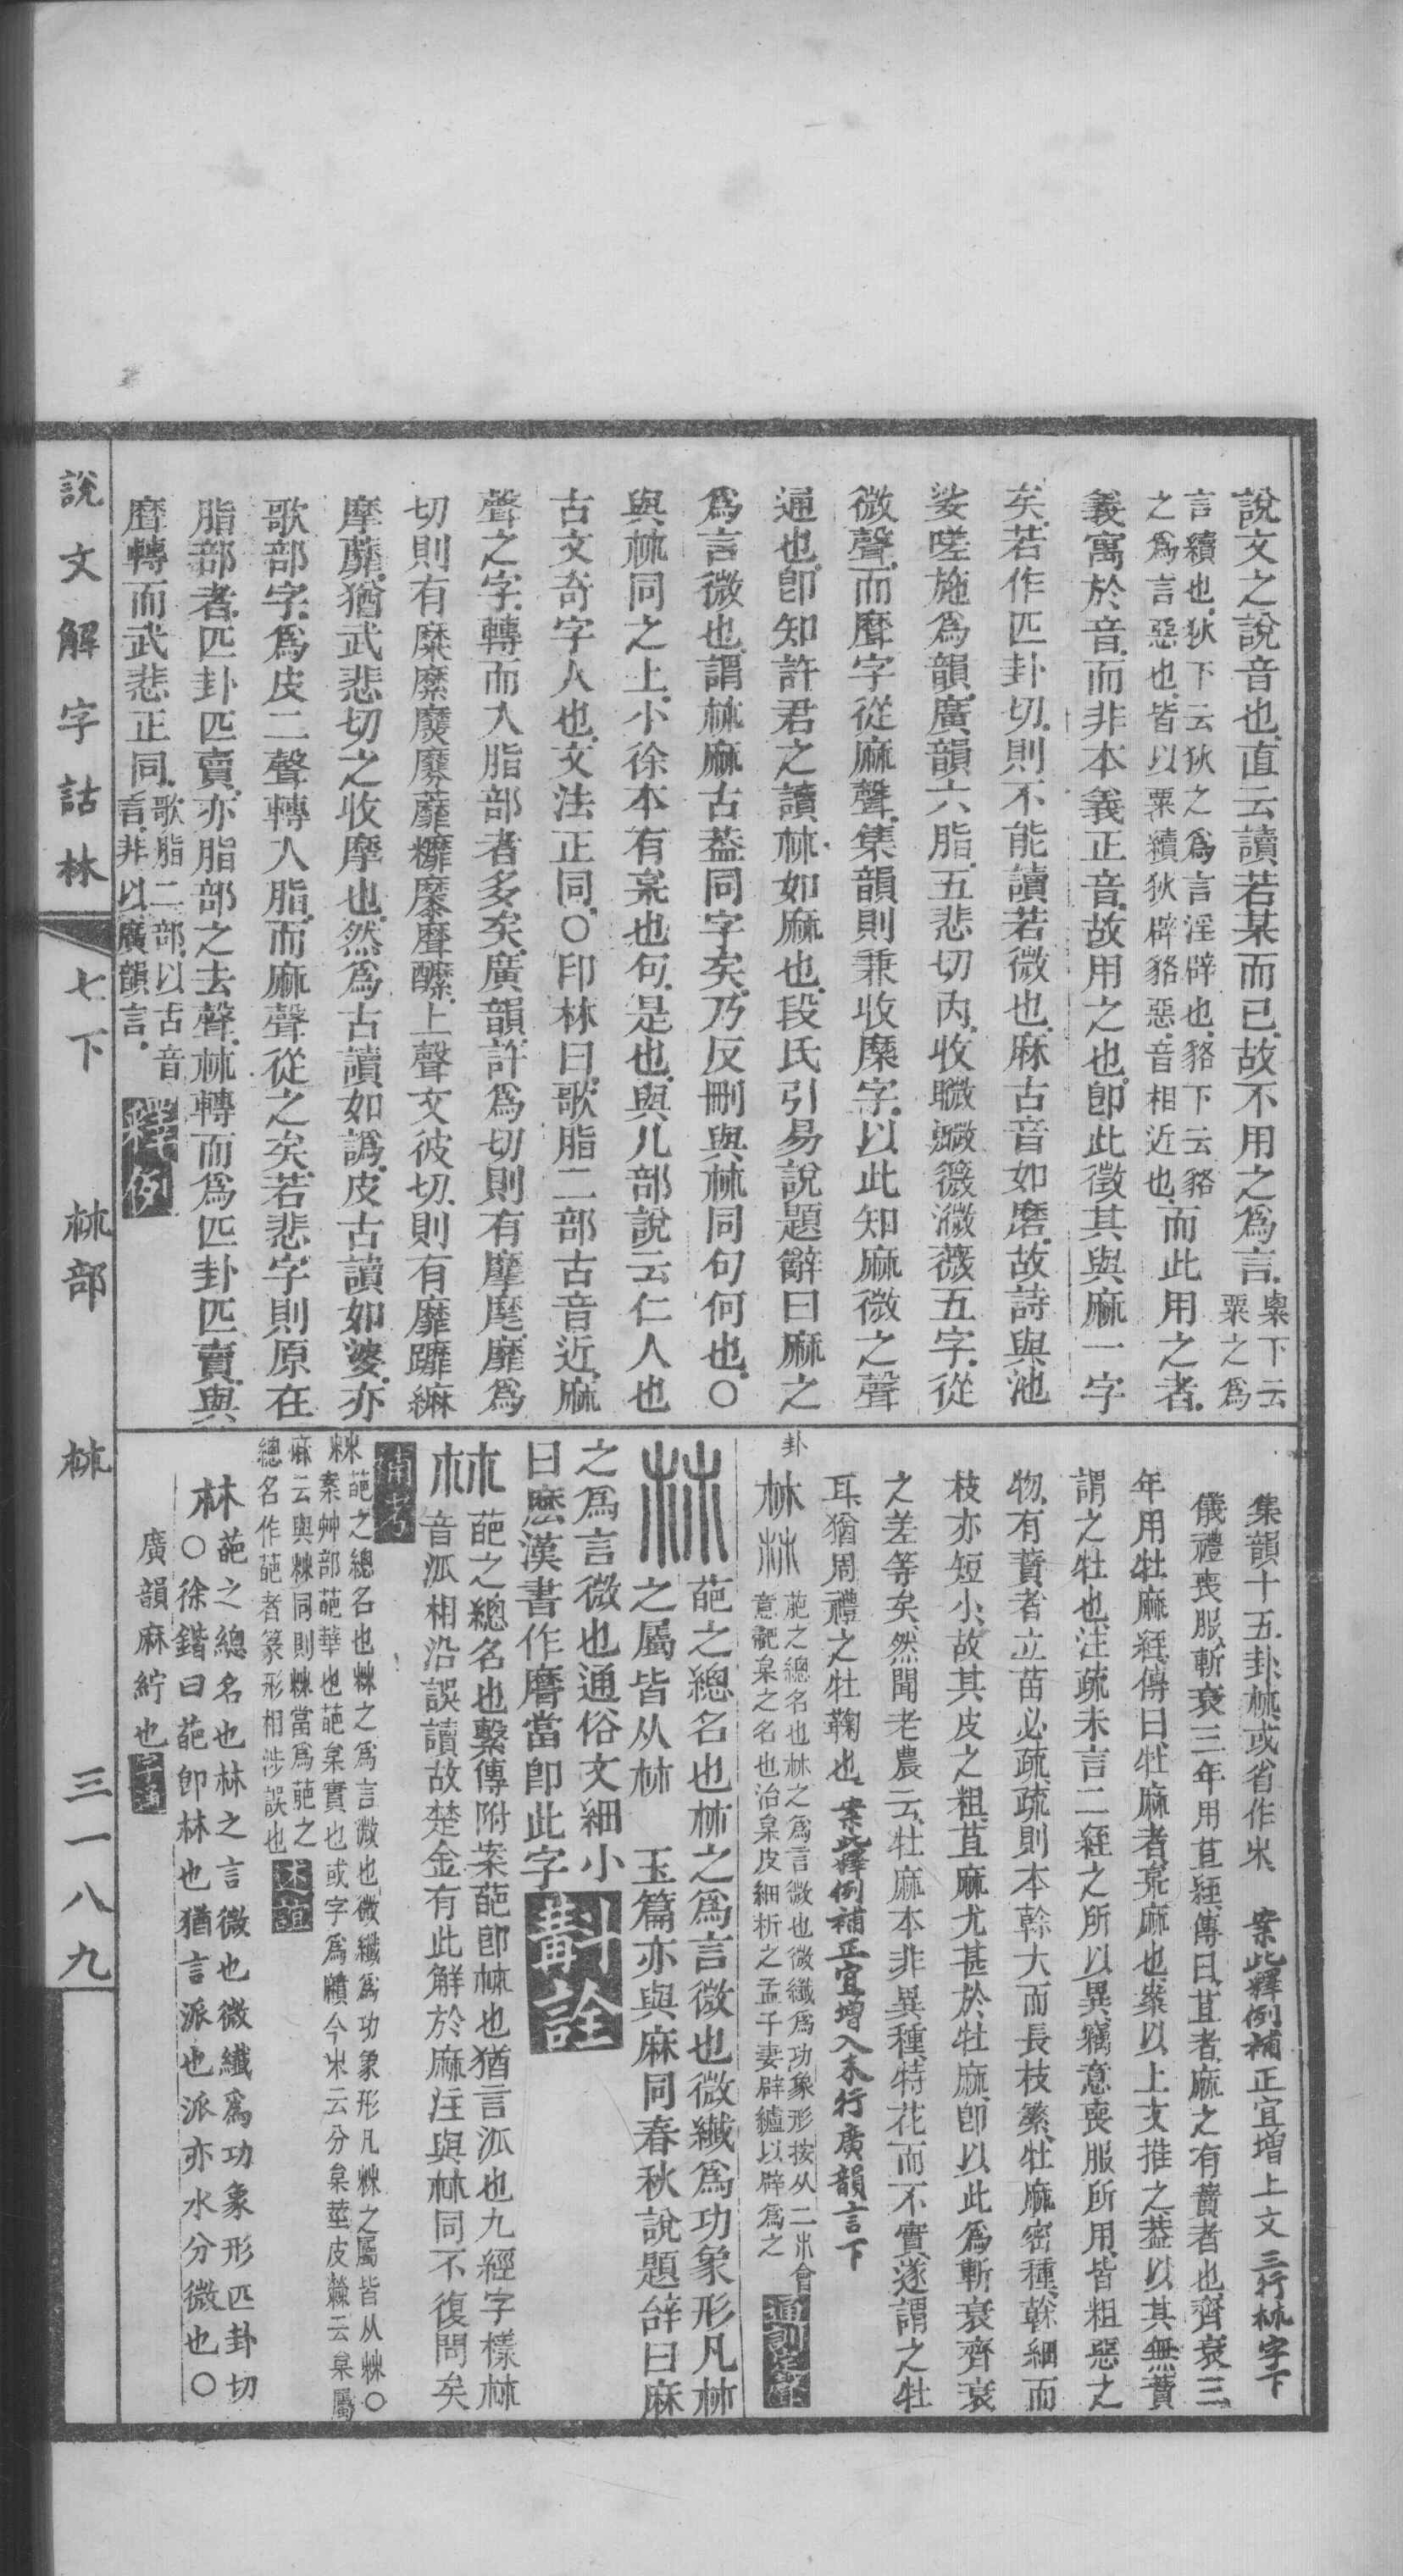 說文之說音也直云讀若某而已故不用之爲言㮚下云㮚之爲
言續也狄下云狄之爲言淫辟也貉下云貉之爲言惡也皆以㮚續狄辟貉惡音相近也而此用之者
義寓於音而非本義正音故用之也卽此徵其與麻一字
矣若作匹卦切則不能讀若微也𣏟古音如磨故詩與池
娑嗟施爲韻廣韻六脂五悲切內收䁲𪖪薇溦薇五字從
微聲而䃺字從麻聲集韻則兼收糜字以此知麻微之聲
通也卽知許君之讀𣏟如麻也段氏引易說題辭曰麻之
爲言微也謂𣏟麻古葢同字矣乃反刪與𣏟同句何也〇
與𣏟同之上小徐本有枲也句是也與儿部說云仁人也
古文奇字人也文法正同〇印林曰歌脂二部古音近麻
聲之字轉而入脂部者多矣廣韻許爲切則有摩麾靡爲
切則有糜縻𪎭䕷蘼𪎮䊳䃺醾上聲文彼切則有靡躪䌕
摩蘼猶武悲切之收摩也然爲古讀如譌皮古讀如婆亦
歌部字爲皮二聲轉入脂而麻聲從之矣若悲字則原在
脂部者匹卦匹賣亦脂部之去聲𣏟轉而爲匹卦匹賣與
䃺轉而武悲正同歌脂二部以古音言非以廣韻言釋例
集韻十五卦𣏟或省作𣎳 案此釋例補正宜增上文三行𣏟字下
儀禮喪服斬衰三年用苴絰傳曰苴者麻之有蕡者也齊衰三
年用牡麻絰傳曰牡麻者枲麻也案以上文推之葢以其無蕡
謂之牡也注疏未言二絰之所以異竊意喪服所用皆粗惡之
物有蕡者立苗必疏疏則本榦大而長枝繁牡麻密種榦細而
枝亦短小故其皮之粗苴麻尤甚於牡麻卽以此爲斬衰齊衰
之差等矣然聞老農云牡麻本非異種特花而不實遂謂之牡
耳猶周禮之牡鞠也 案此釋例補正宜增入末行廣韻言下
卦𣏟𣏟葩之總名也𣏟之爲言微也微纖爲功象形按从二𣎳會意萉枲之名也治枲皮細析之孟子妻辟纑以辟爲之通訓定聲
𣏟葩之總名也𣏟之爲言微也微纖爲功象形凡𣏟
之屬皆从𣏟 玉篇亦與麻同春秋說題辭曰麻
之爲言微也通俗文細小
曰麽漢書作䃺當卽此字斠詮
𣏟葩之總名也繫傳附案葩卽𣏟也猶言𣲖也九經字樣𣏟
音𣲖相沿誤讀故楚金有此解於麻注與𣏟同不復問矣
南考
𣏟葩之總名也𣏟之爲言微也微纖爲功象形凡𣏟之屬皆从𣏟〇
案艸部葩華也萉枲實也或字爲䕊今𣎳云分枲莖皮𣏟云枲屬
麻云與𣏟同則𣏟當爲萉之
總名作葩者篆形相涉誤也述誼
𣏟葩之總名也𣏟之言微也微纖爲功象形匹卦切
〇徐鍇曰葩卽𣏟也猶言派也派亦水分微也〇
廣韻麻紵也
說文解字詁林 七下 𣏟部 𣏟 三一八九